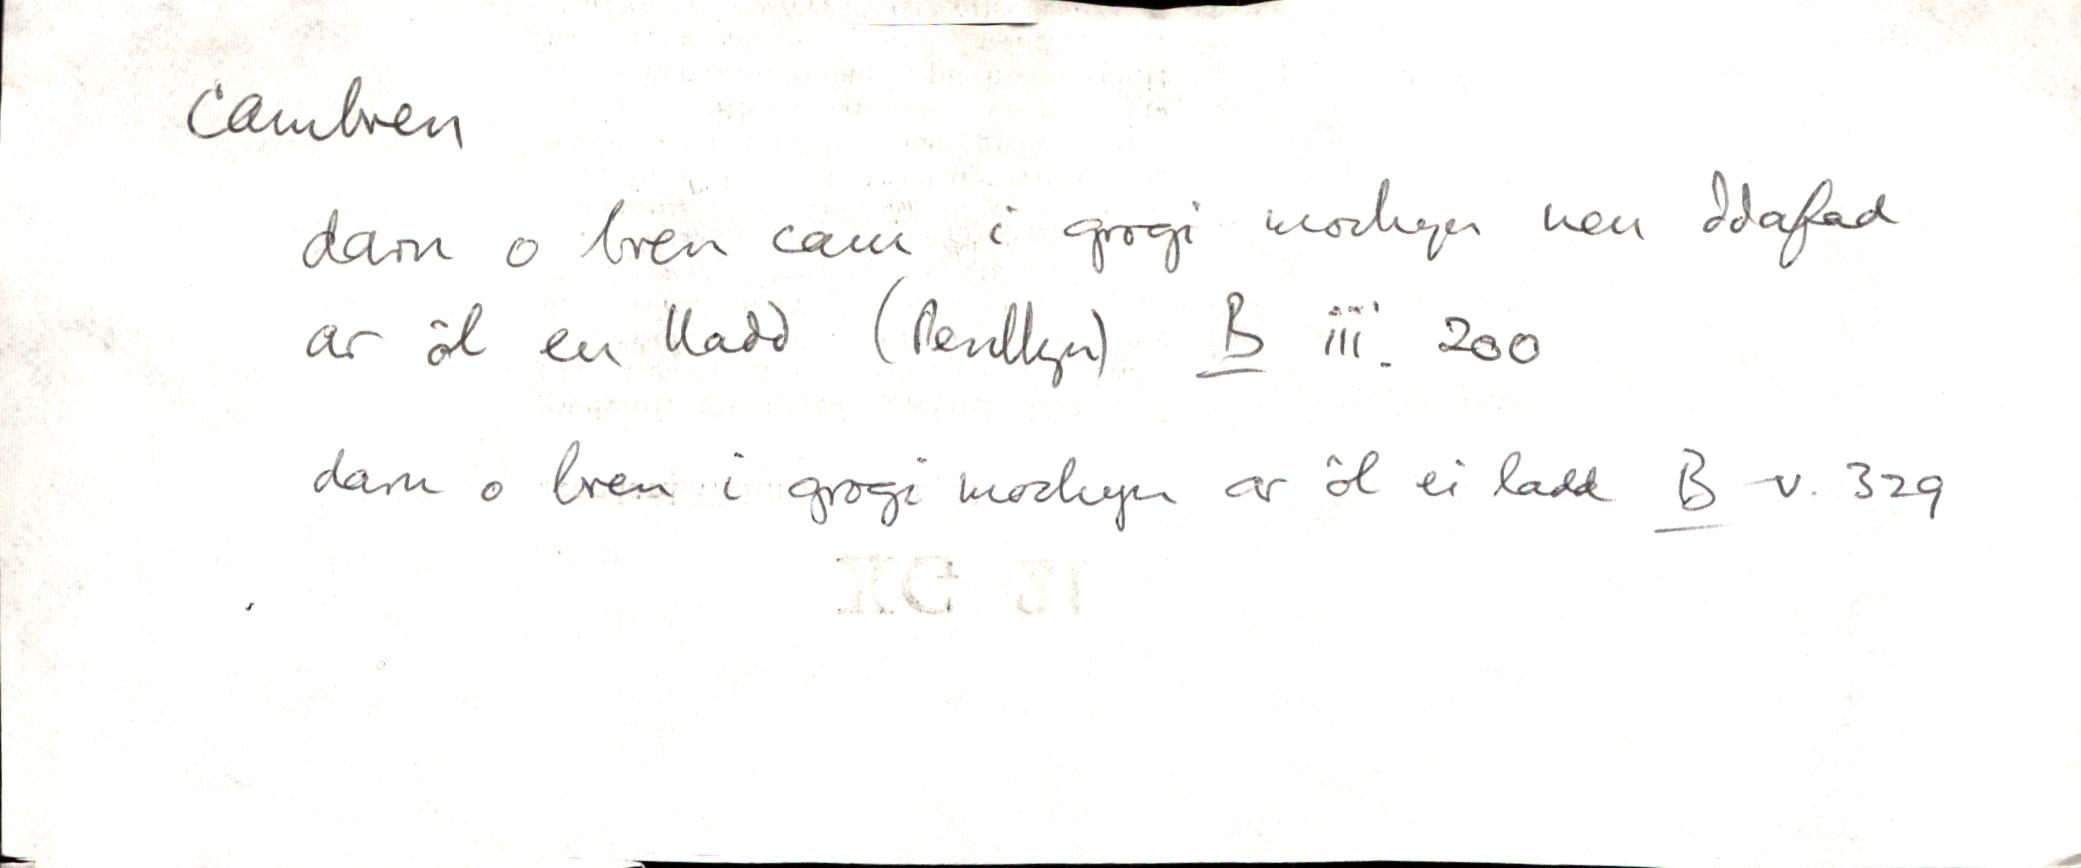 Cambren
darn o bren cam i grogi mochyn neu ddafad
ar ôl eu lladd (Penllyn) B iii. 200
darn o bren i grogi mochyn ar ôl ei ladd B v. 329